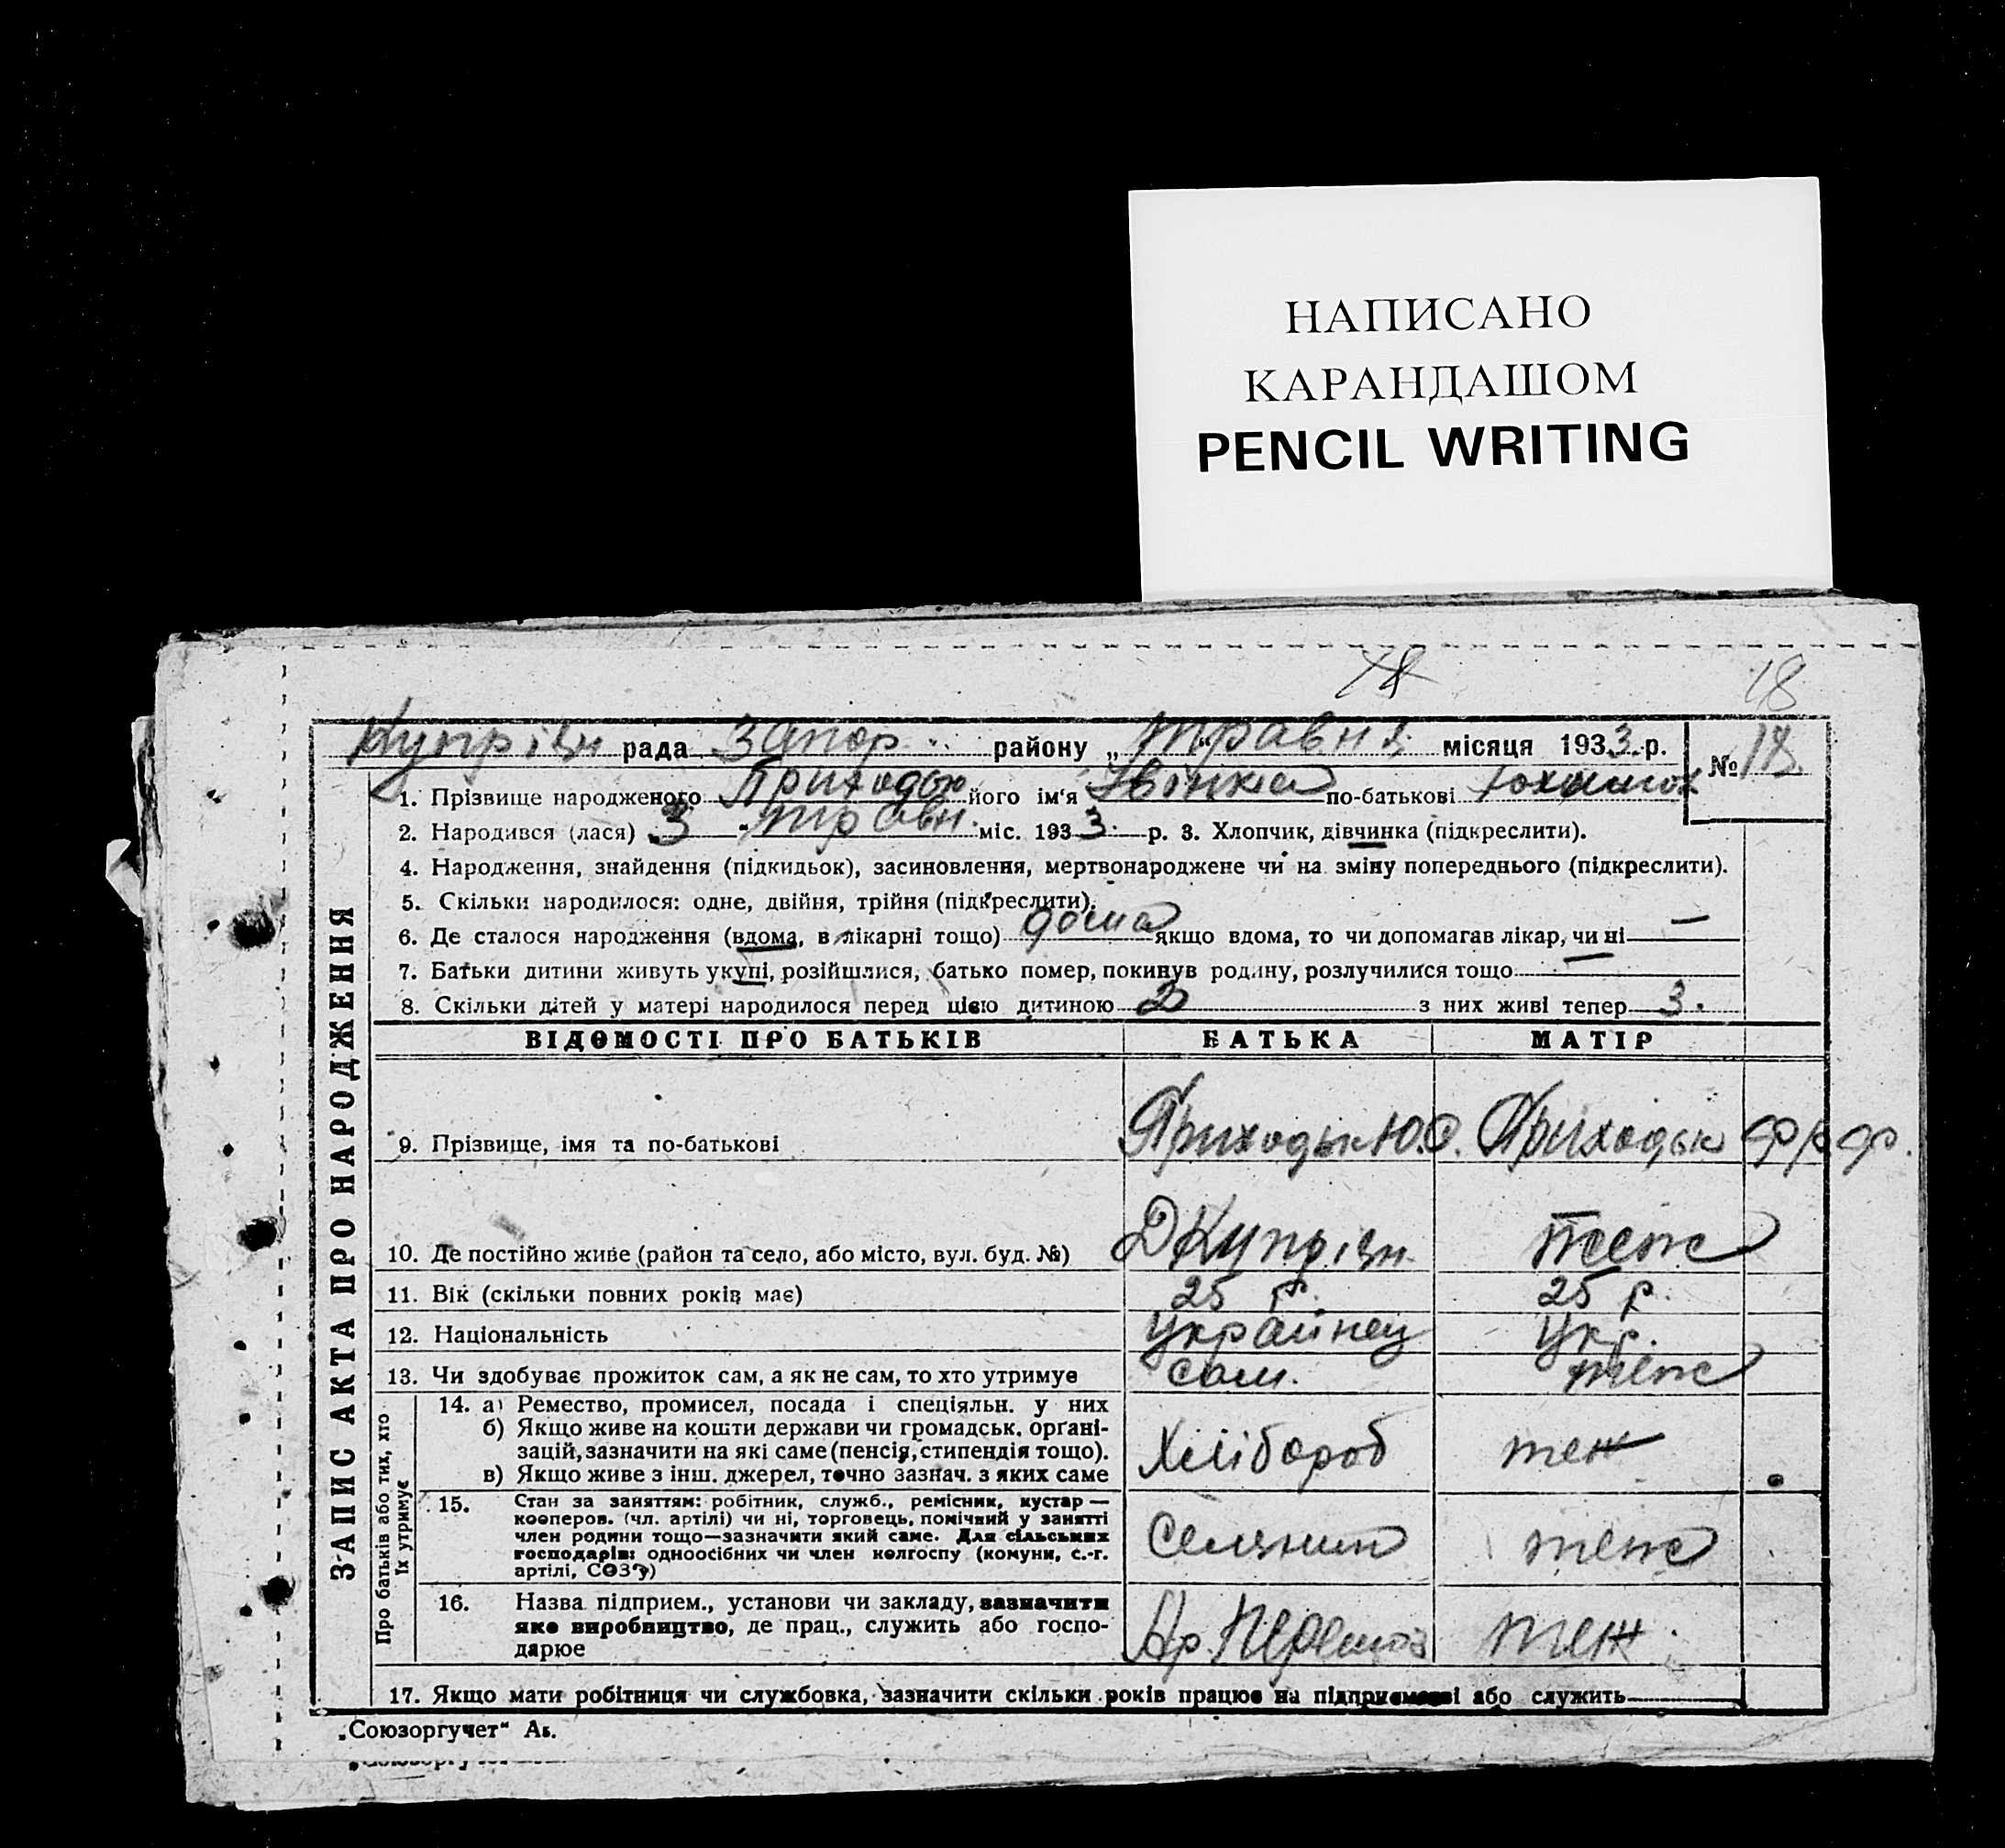 НАПИСАНО
КАРАНДАШОМ
PENCIL WRITING
18
18
Купрізн рада Запор. району „ “ травня місяця 1933 р. № 18
1. Прізвище народженого Приходьк його ім‘я по-батькові Юхимов
2. Народився (лася) 3 „ травн. міс. 1933 р. 3. Хлопчик, дівчинка (підкреслити).
4. Народження, знайдення (підкидьок), засиновлення, мертвонароджене чи на зміну попереднього (підкреслити).
5. Скільки народилося: одне, двійня, трійня (підкреслити).
6. Де сталося народження (вдома, в лікарні тощо) дома якщо вдома, то чи допомагав лікар, чи ні —
7. Батьки дитини живуть укупі, розійшлися, батько помер, покинув родину, розлучилися тощо
8. Скільки дітей у матері народилося перед цією дитиною 2 з них живі тепер 3.
ЗАПИС АКТА ПРО НАРОДЖЕННЯ
ВІДОМОСТІ ПРО БАТЬКІВ БАТЬКА МАТІР
9. Прізвище, імя та по-батькові Приходьк Ю.О. Приходьк Ф.
10. Де постійно живе (район та село, або місто, вул. буд. №) Купрізн. теж
11. Вік (скільки повних років має) 25 р. 25 р.
12. Національність Украйнец Укр.
13. Чи здобуває прожиток сам, а як не сам, то хто утримує сам. теж
Про батьків або тих, хто
їх утримує
14. а) Ремество, промисел, посада і спеціяльн. у них
б) Якщо живе на кошти держави чи громадськ. органі-
зацій, зазначити на які саме (пенсія, стипендія тощо).
в) Якщо живе з інш. джерел, точно зазнач. з яких саме
Хлібороб теж
15. Стан за заняттям: робітник, служб., ремісник, кустар —
кооперов. (чл. артілі) чи ні, торговець, помічний у занятті
член родини тощо—зазначити який саме. Для сільських
господарів: одноосібних чи член колгоспу (комуни, с.-г.
артілі, СОЗ‘у)
Селянин теж
16. Назва підприєм., установи чи закладу, зазначити
яке виробництво, де прац., служить або госпо-
дарює
Ар. теж
17. Якщо мати робітниця чи службовка, зазначити скільки років працює на підприємстві або служить
„Союзоргучет“